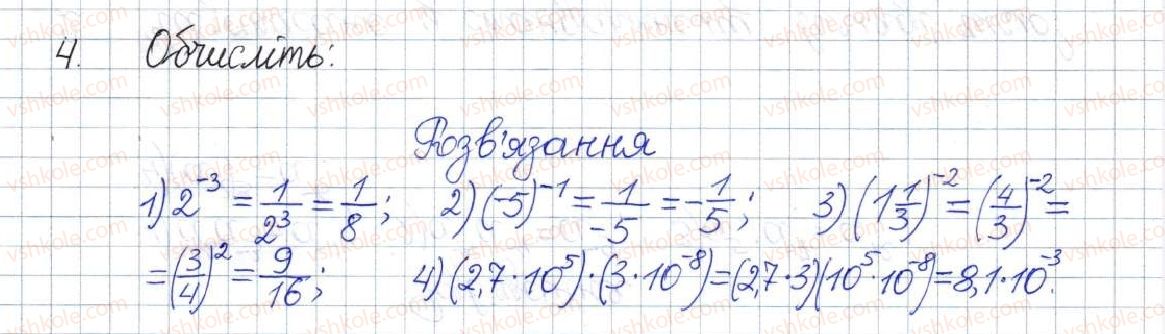 4. Обчисліть:
Розв'язання
1) 2⁻³ = 1/2³ = 1/8; 2) (-5)⁻¹ = 1/-5 = -1/5; 3) (1 1/3)⁻² = (4/3)⁻² =
= (3/4)² = 9/16; 4) (2,7·10⁵)·(3·10⁻⁸) = (2,7·3)(10⁵·10⁻⁸) = 8,1·10⁻³.